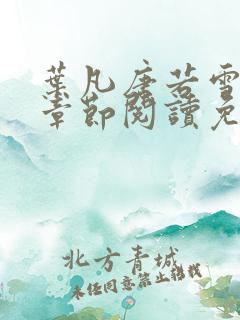 葉凡唐若雪
章節閱讀免
北方青城
未经同意禁止转载